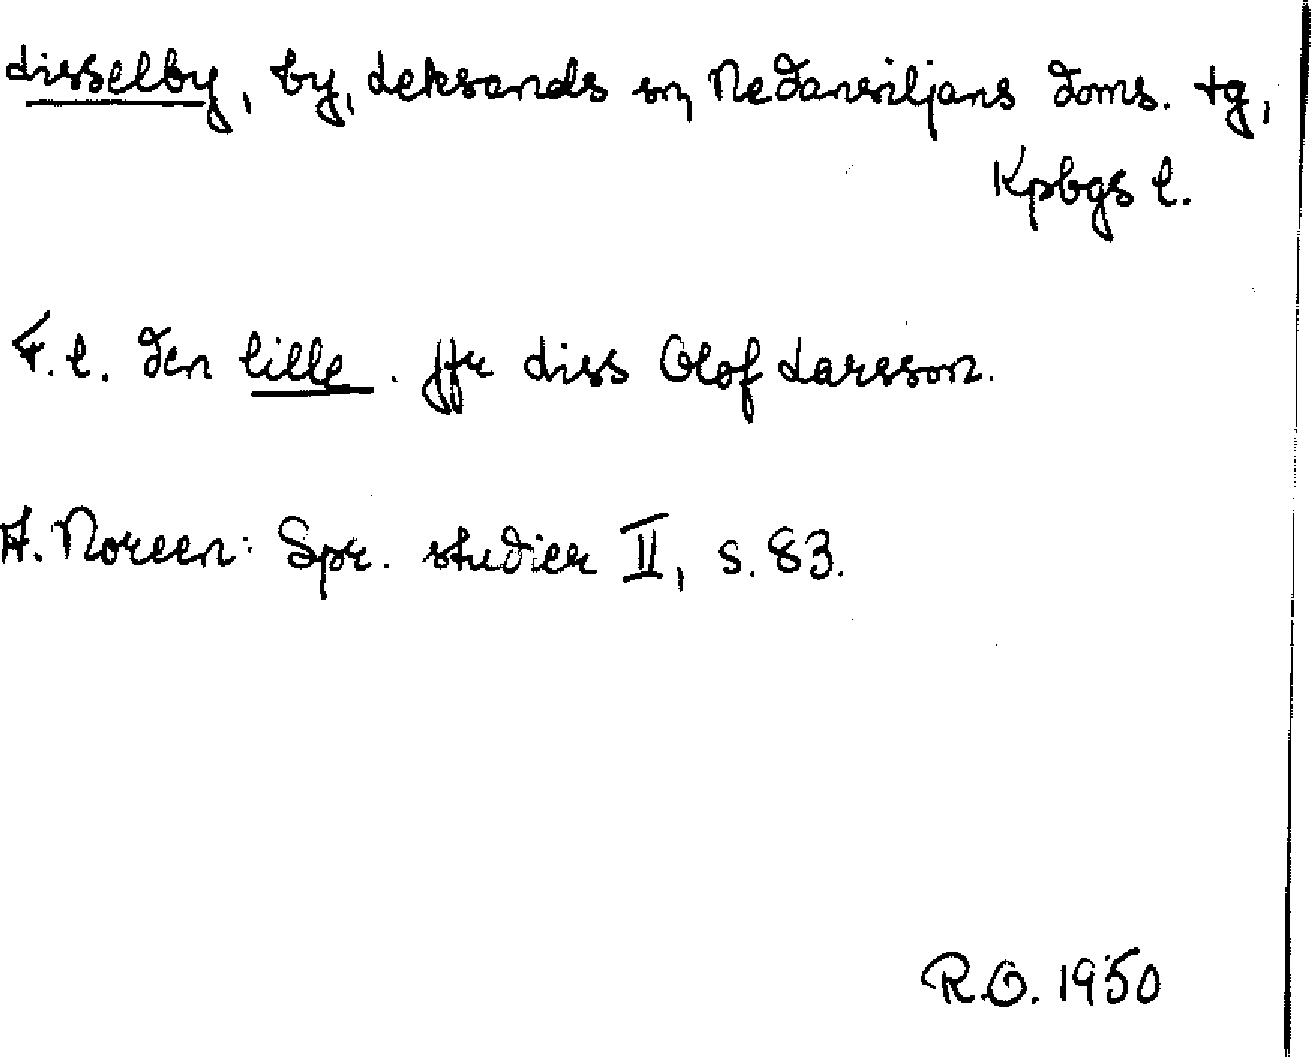 Lisselby, by, Leksands sn, Nedansiljans doms. tg,
Kpbgs l.
F.l. den lille. Jfr Liss Olof Larsson.
A. Noreen: Spr. studier II, s. 83.
R.O. 1950